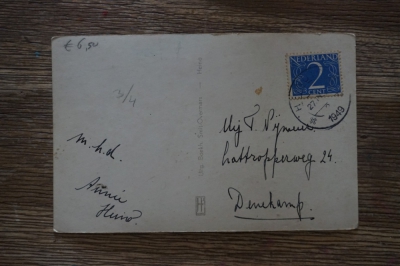 € 6,50
3/4
m.h.d.
Annie
Heino.
NEDERLAND
2
CENT
1949
Mej T.
Lattropperweg 24.
Denekamp.